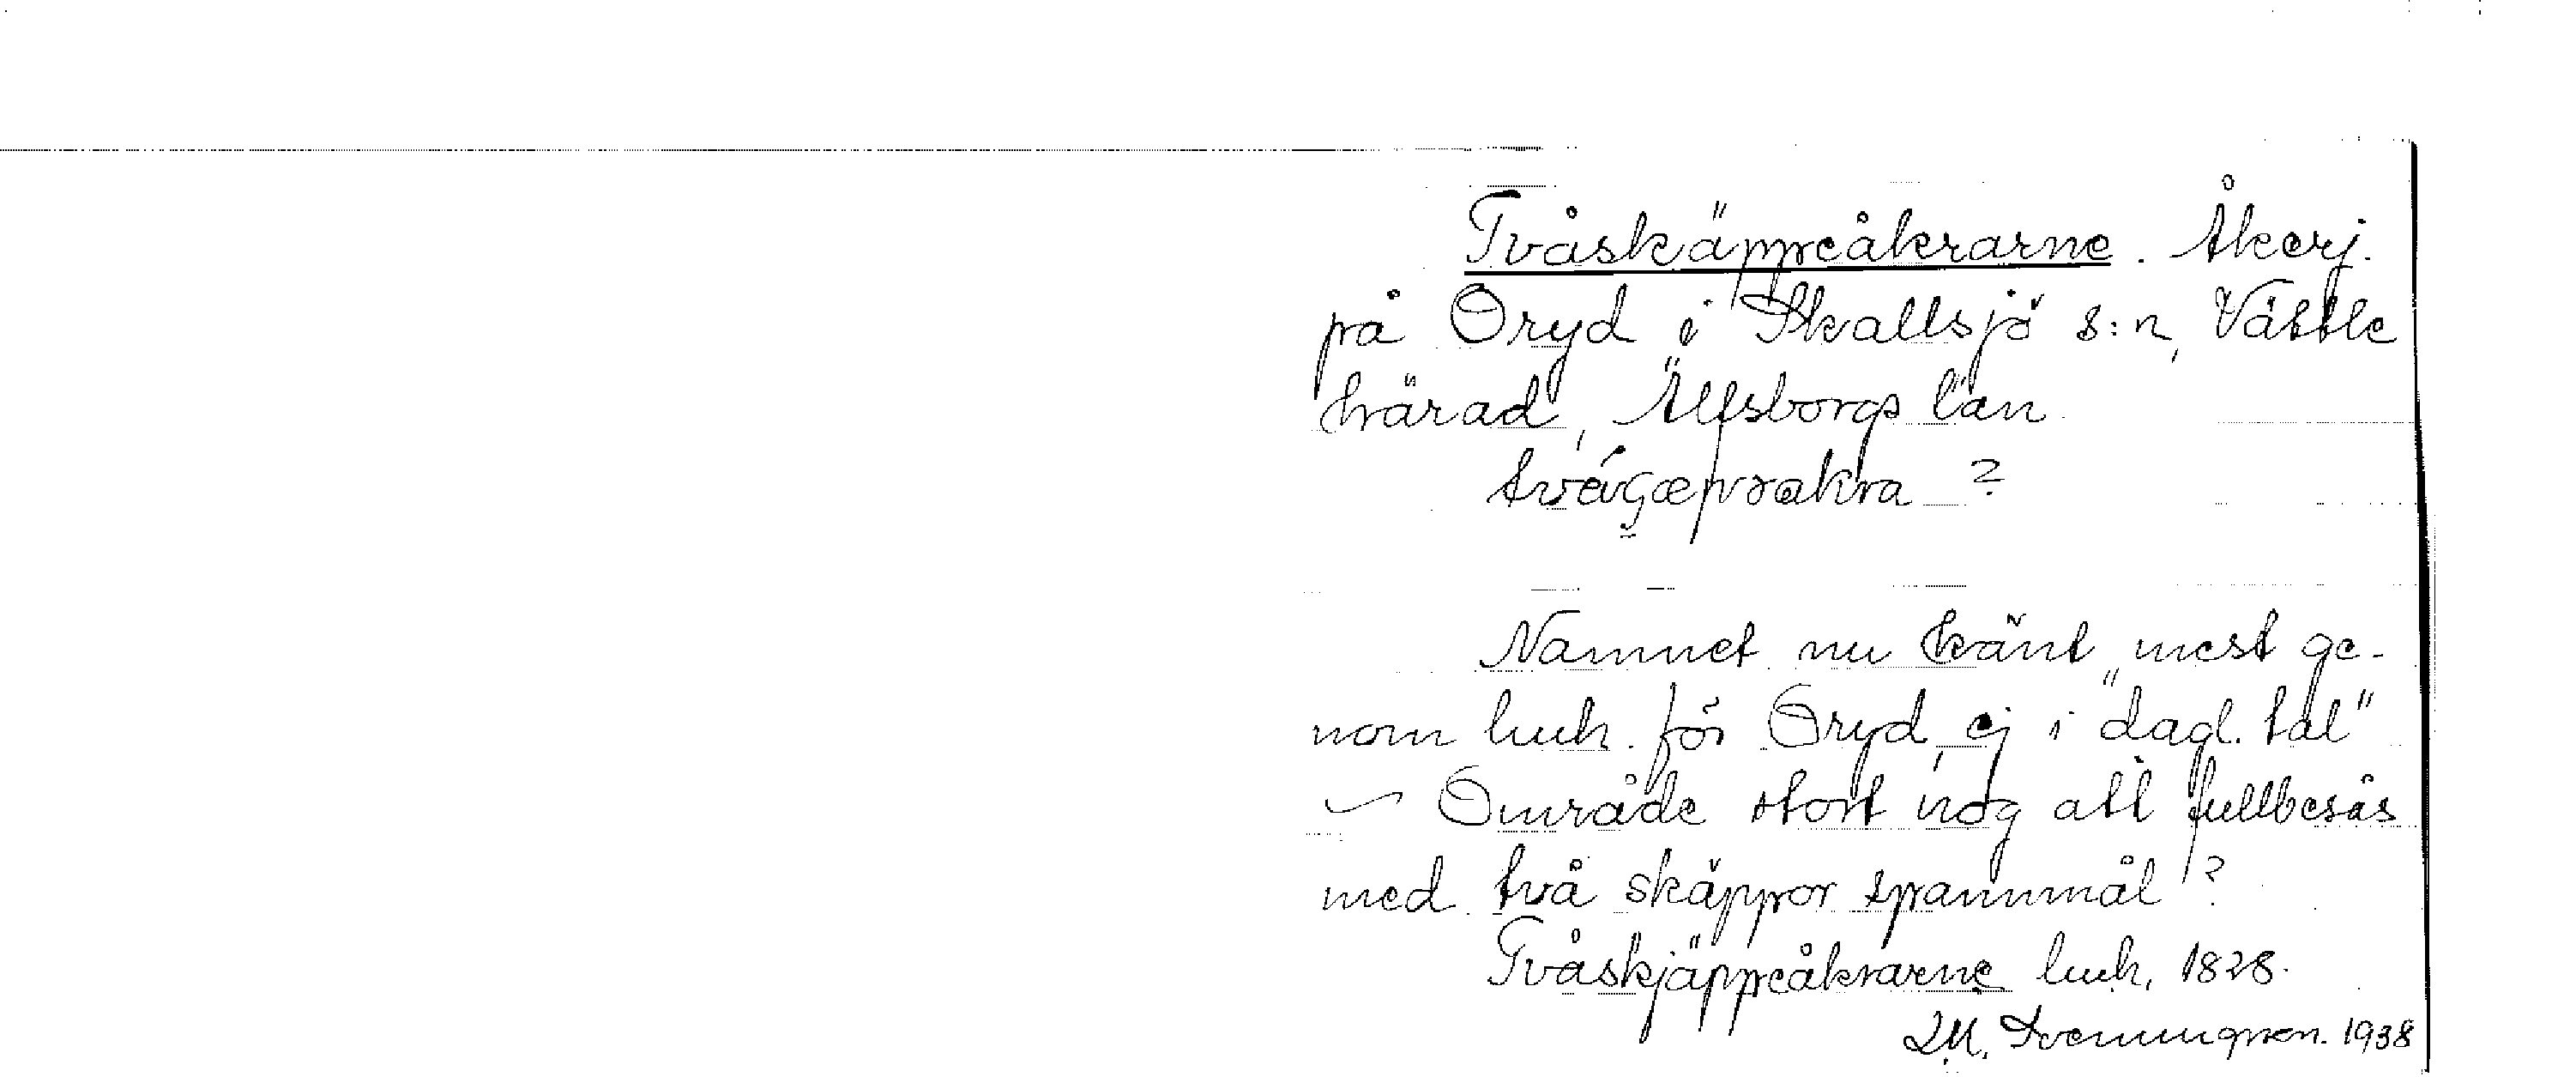 Tvåskäppeåkrarne. Åkerj.
på Oryd i Skallsjö s:n, Vättle
härad, Älfsborgs län.
?
Namnet nu känt mest ge-
nom luh. för Oryd, ej i "dagl. tal"
Område stort nog att fullbesås
med två skäppor spannmål?
Tvåskjäppeåkrarne luh. 1828.
Svenungsson. 1938